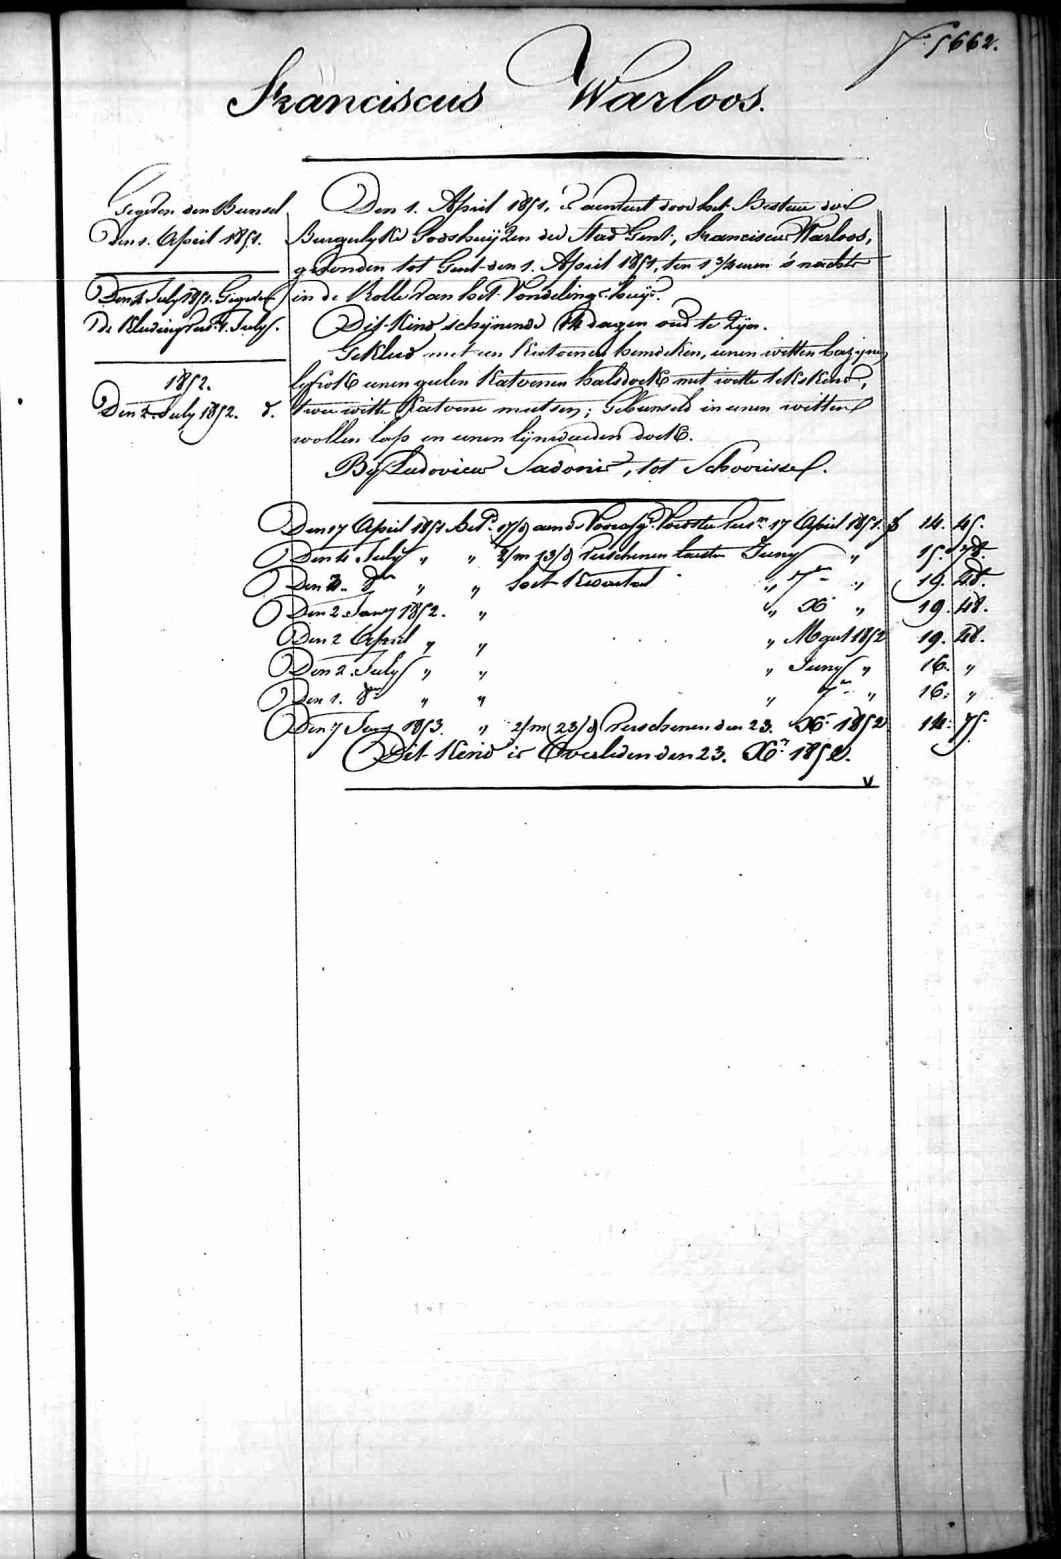 5662.
Franciscus Warloos.
Gegeven den Bunsel
Den 1. April 1851.
Den 4 July 1851. Gegeven
de Kleeding
1852.
Den 2 July 1852. d.
Den 1. April 1851, is aenveert door het Bestuer der
Burgelyke Godshuijzen der Stad Gent, Franciscus Warloos,
gevonden tot Gent den 1. April 1851, ten 1 3/4 uren 's nachts
in de Rolle van het Vondelingshuijs.
Dit Kind schijnende 14 dagen oud te zijn.
Gekleed met een Katoenen hemdeken, eenen witten
lyfrok eenen geelen Katoenen halsdoek met witte
twee witte Katoene mutsen; Gebunseld in eenen witten
wollen lap en eenen lijnwaeden doek.
By Ludovicus Sadonis, tot Schoorisse.
Den 17 April 1851 17 April 1851. f 14. 45.
Den 4. July " " 2/m verschenen laesten Juny " 15. 78.
Den 3. 8er " " Kwartael " 7er " 19. 48.
Den 2. Jany 1852. " " X " 19. 48.
Den 2 April " " " Maert 1852 19. 48.
Den 2. July " " " Juny " 16. "
Den 1. 8er " " " 7er " 16. "
Den 7 Jany 1853. " 2/m (23/d) verschenen den 23. Xr 1852 14. 75.
Dit Kind is Overleden den 23. Xr 1852.